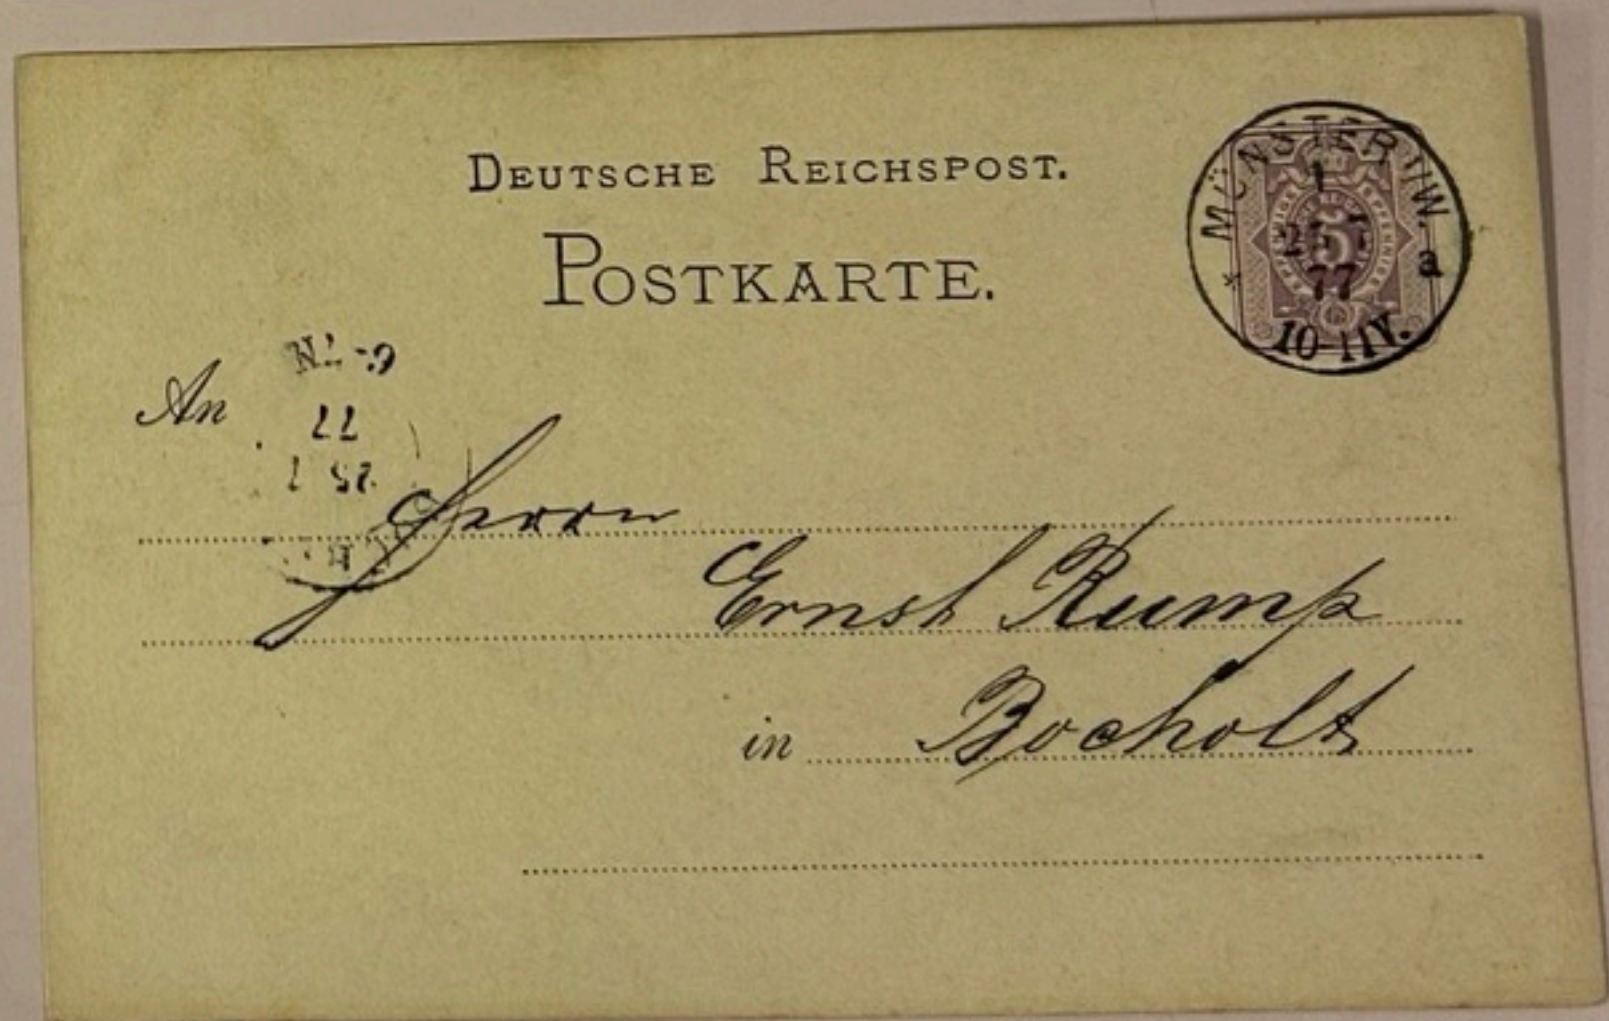 DEUTSCHE REICHSPOST.
POSTKARTE.
* MÜNSTER I/W.
1
25 7
77
a
10-11V.
5
An
6-7N
77
25 7
Herrn
Ernst Rump
in Bocholt